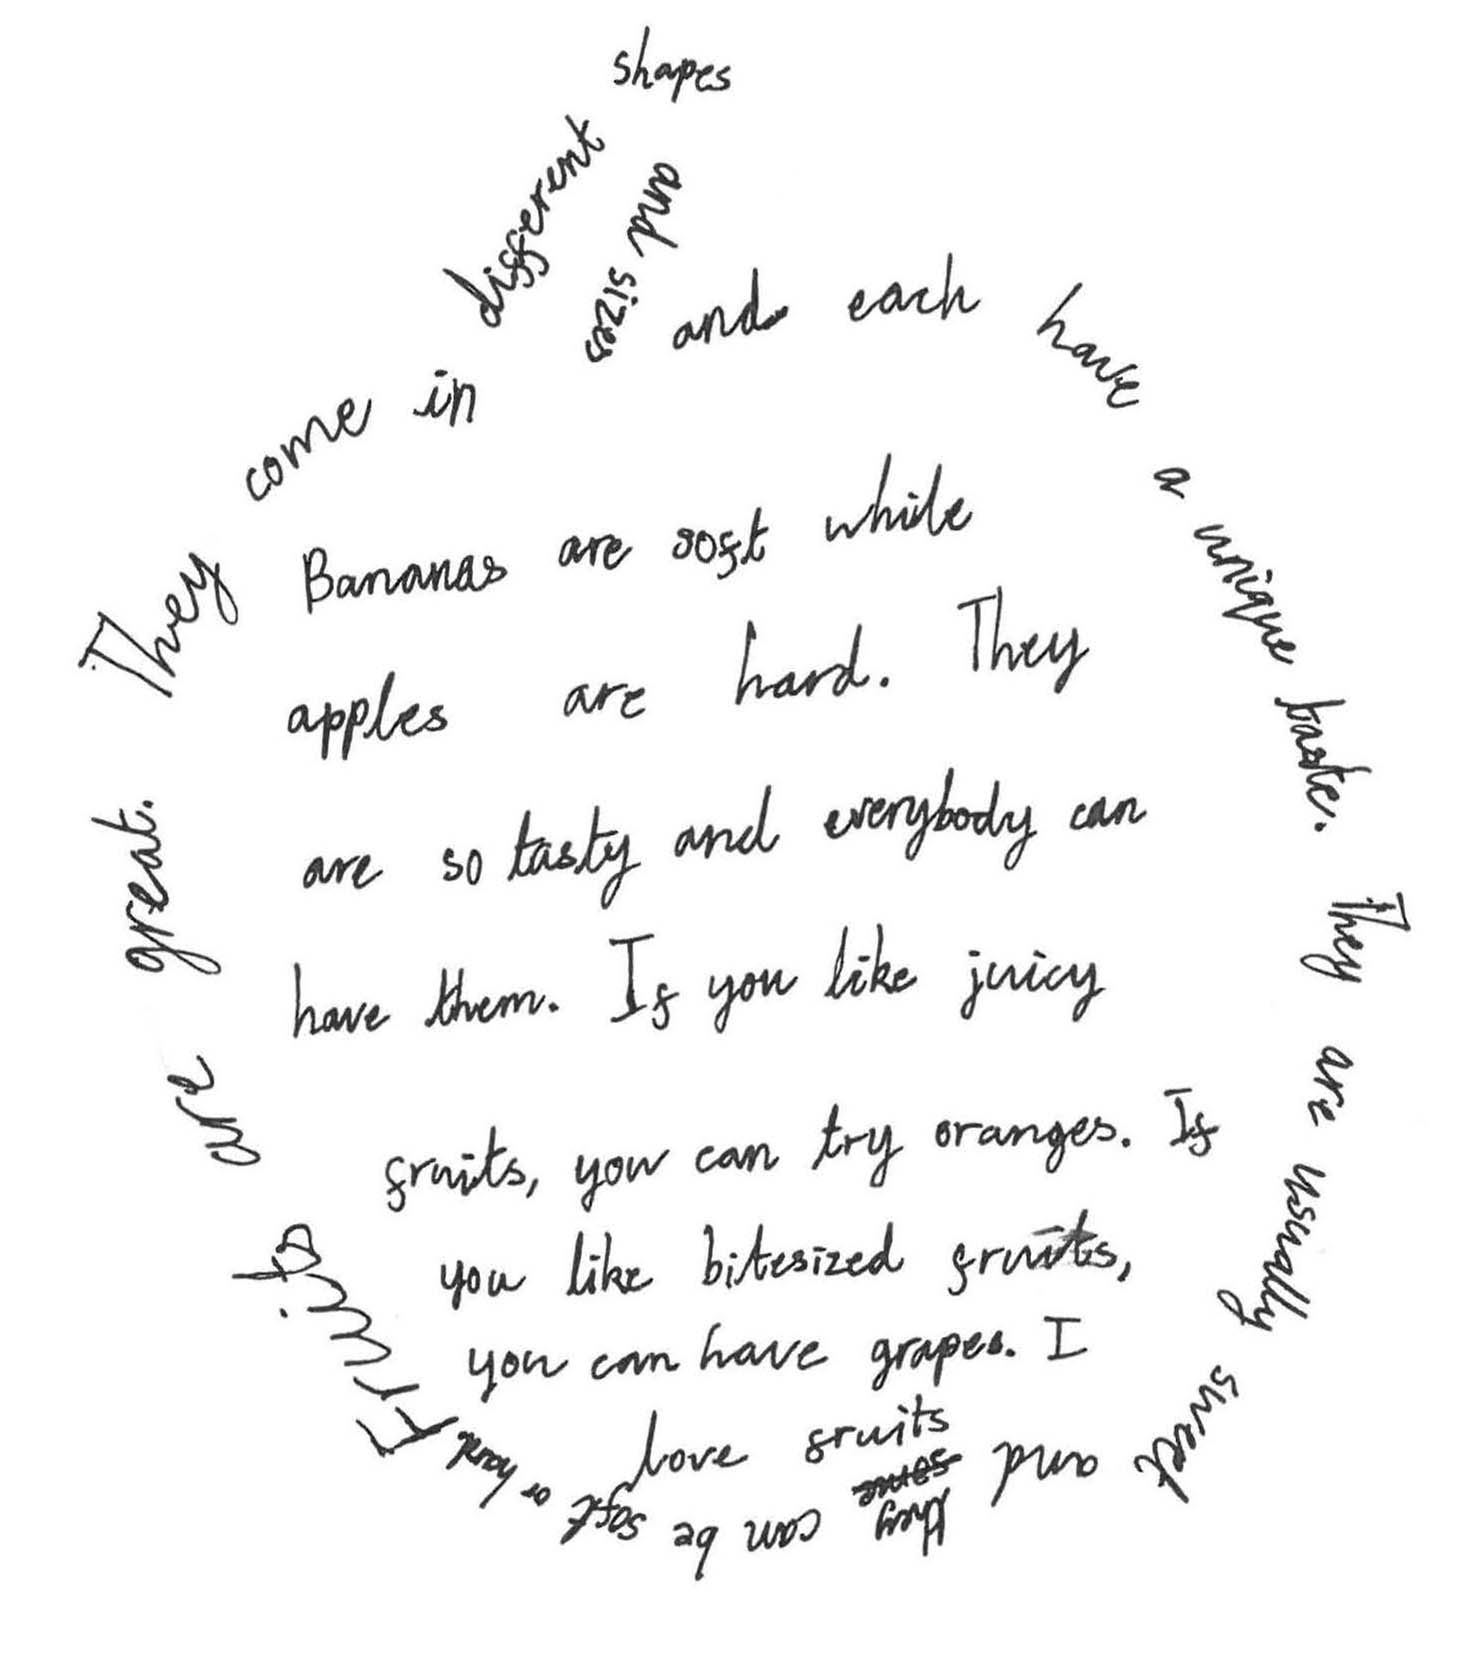 Fruits are great. They come in different shapes and sizes and each have a unique taste. They are usually sweet and they can be soft or hard
Bananas are soft while
apples are hard. They
are so tasty and everybody can
have them. If you like juicy
fruits, you can try oranges. If
you like bitesized fruits,
you can have grapes. I
love fruits